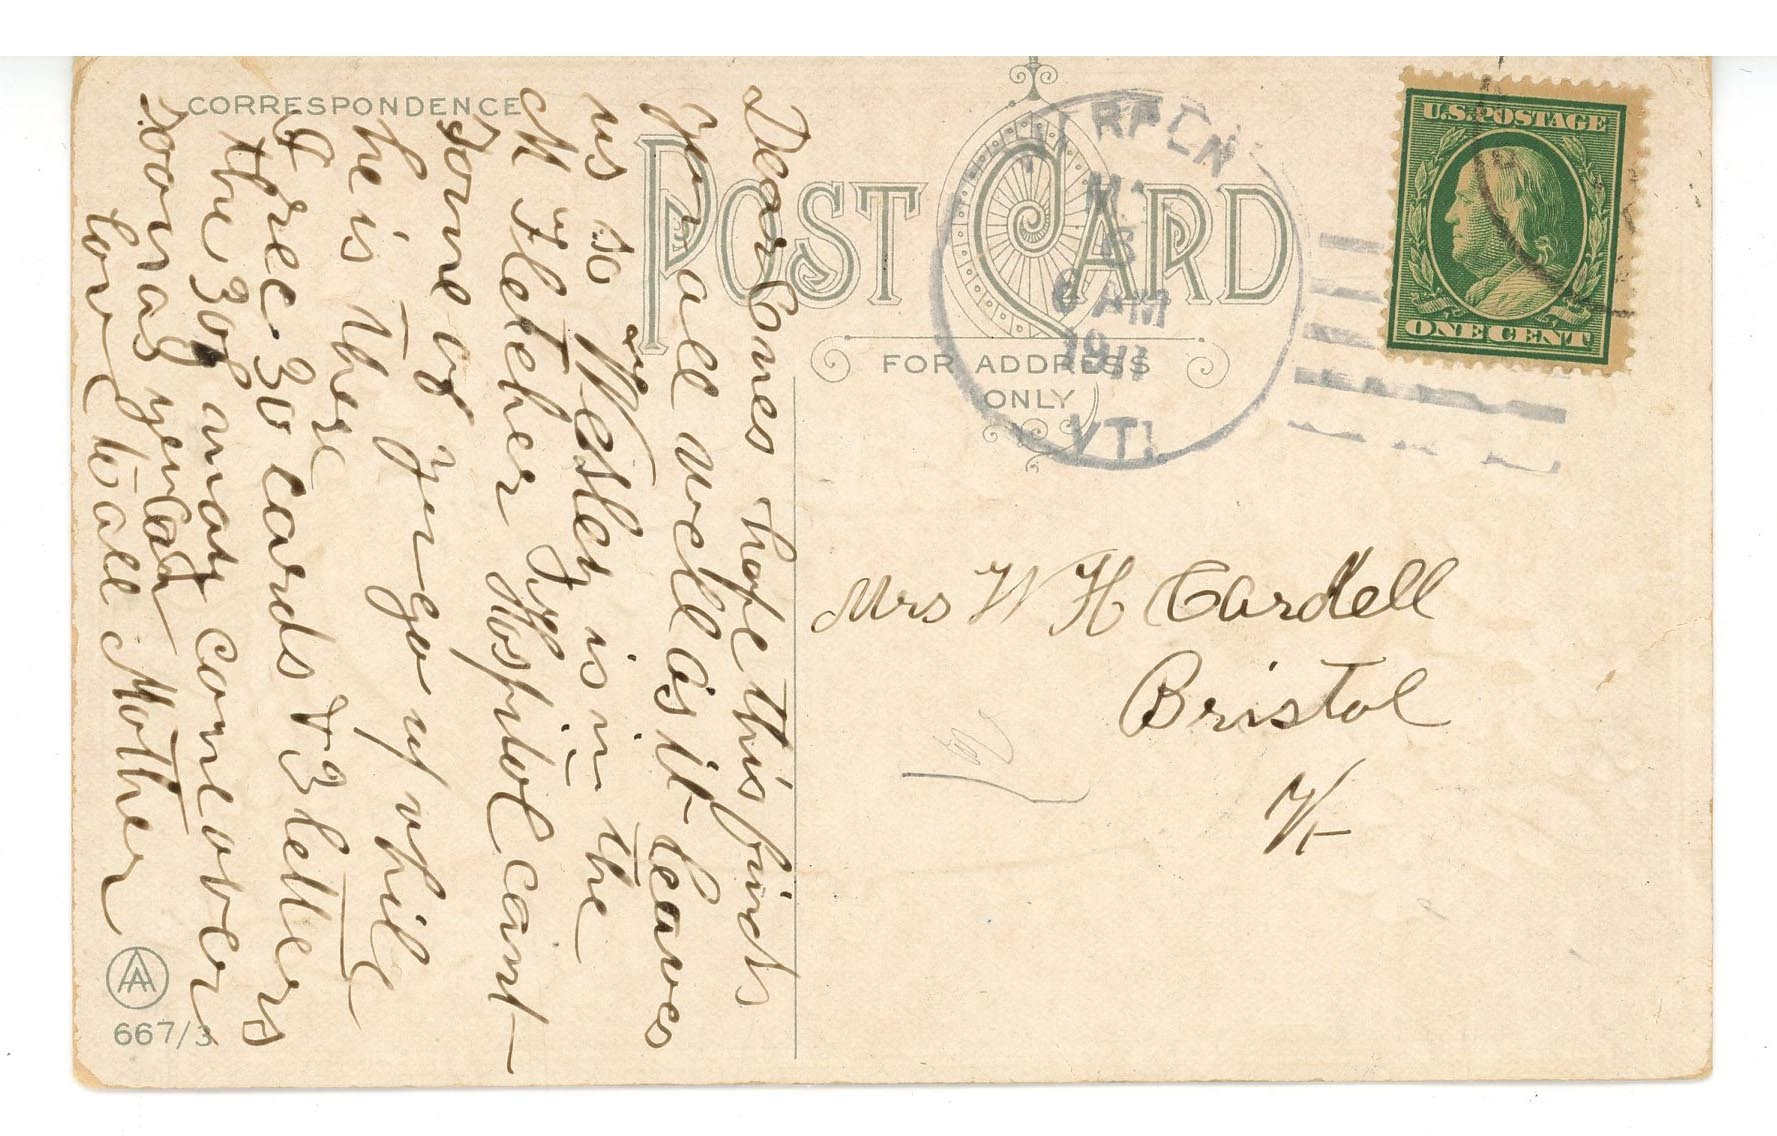 CORRESPONDENCE
POST CARD
FOR ADDRESS
ONLY
U.S. POSTAGE
ONE CENT
AM
1911
VT.
Dear Ones hope this finds
you all well as it leaves
us so are Wesley is in the
M Fletcher Hospitol cant
some of you go up while
he is there
I rec 30 cards & 3 letters
the 30 may come over
soon as you can
love to all Mother
Mrs W H Cardell
Bristol
Vt
AA
667/3